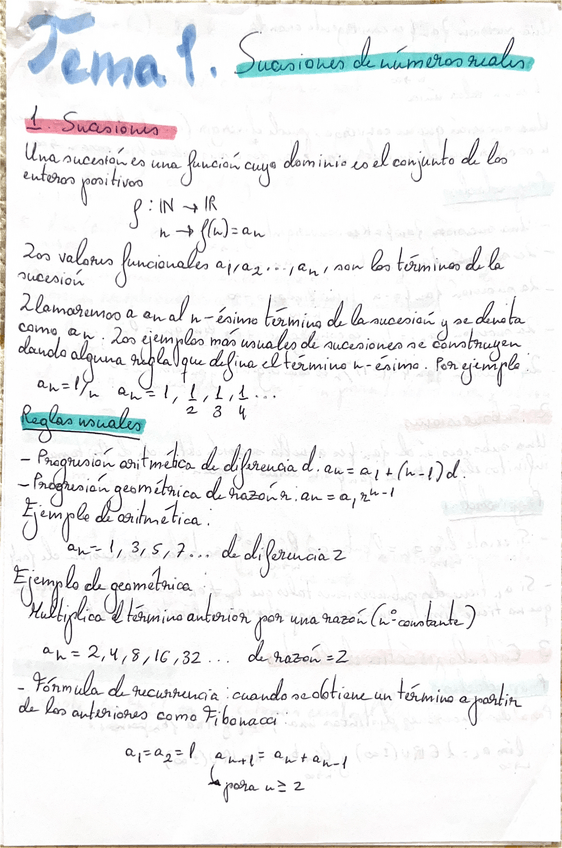 Tema 1. Sucesiones de números reales
1. Sucesiones
Una sucesión es una función cuyo dominio es el conjunto de los
enteros positivos
f : IN → IR
n → f(n) = an
Los valores funcionales a1, a2 ..., an, son los términos de la
sucesión
Llamaremos a an al n-ésimo término de la sucesión y se denota
como an. Los ejemplos más usuales de sucesiones se construyen
dando alguna regla que defina el término n-ésimo. Por ejemplo:
an = 1/n an = 1, 1/2, 1/3, 1/4 ...
Reglas usuales
- Progresión aritmética de diferencia d. an = a1 + (n-1)d.
- Progresión geométrica de razón r. an = a1 r^n-1
Ejemplo de aritmética:
an = 1, 3, 5, 7 ... de diferencia 2
Ejemplo de geométrica:
Multiplica el término anterior por una razón (nº constante)
an = 2, 4, 8, 16, 32 ... de razón = 2
- Fórmula de recurrencia: cuando se obtiene un término a partir
de los anteriores como Fibonacci:
a1 = a2 = 1 an+1 = an + an-1
↳ para n ≥ 2